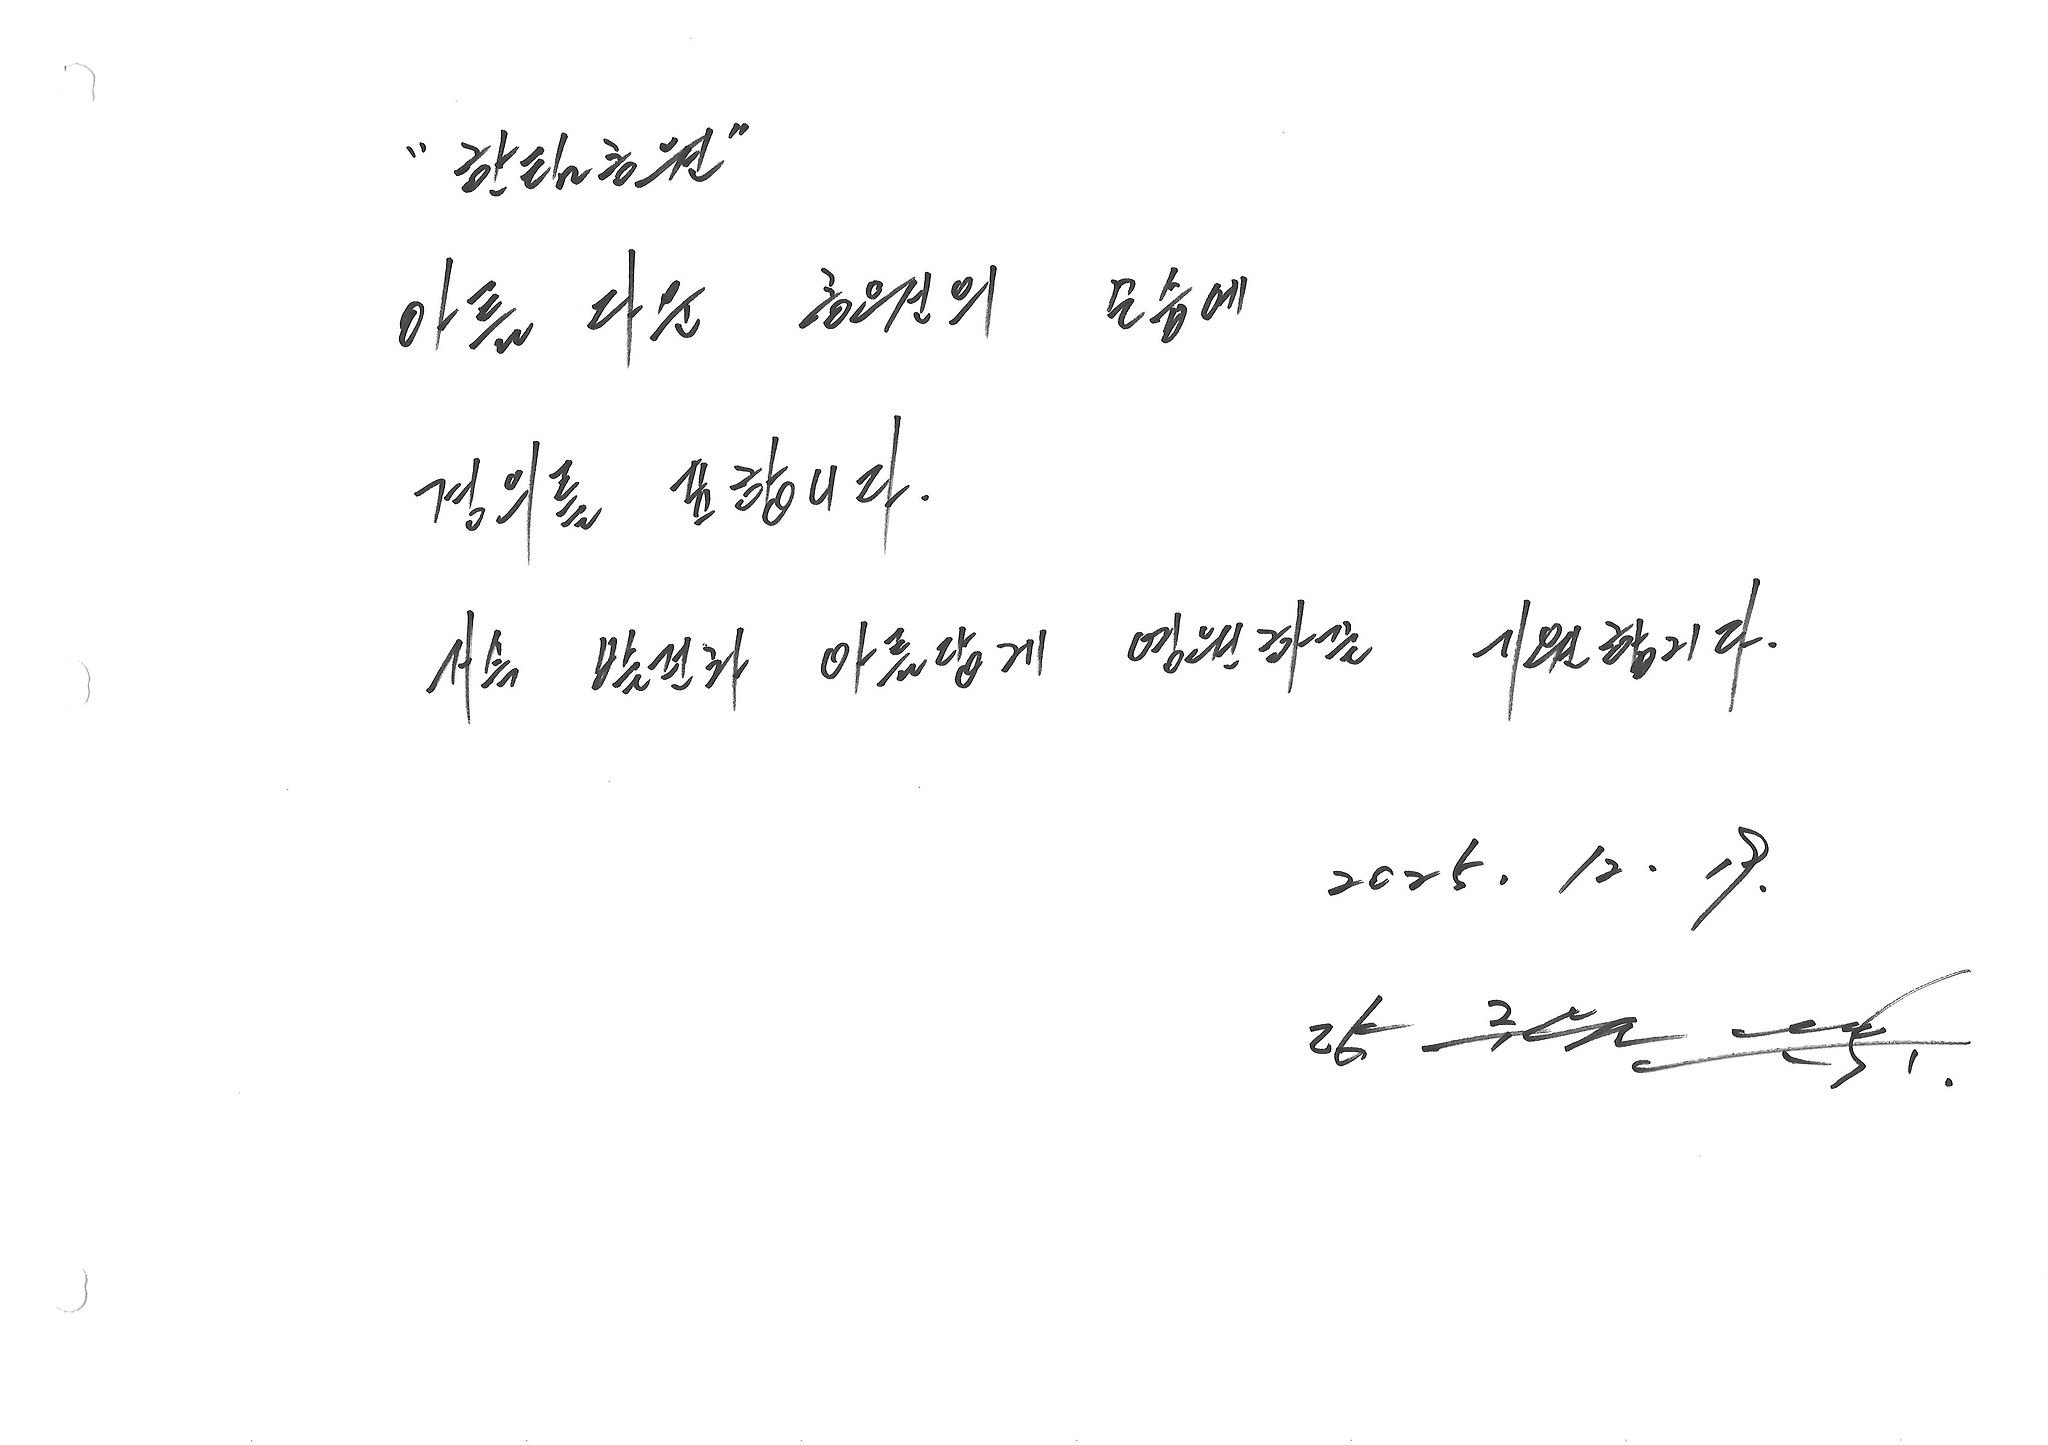 "한림공원"
아름 다운 공원의 모습에
경의를 표합니다.
지속 발전과 아름답게 영원하길 기원합니다.
2025. 12. 19.